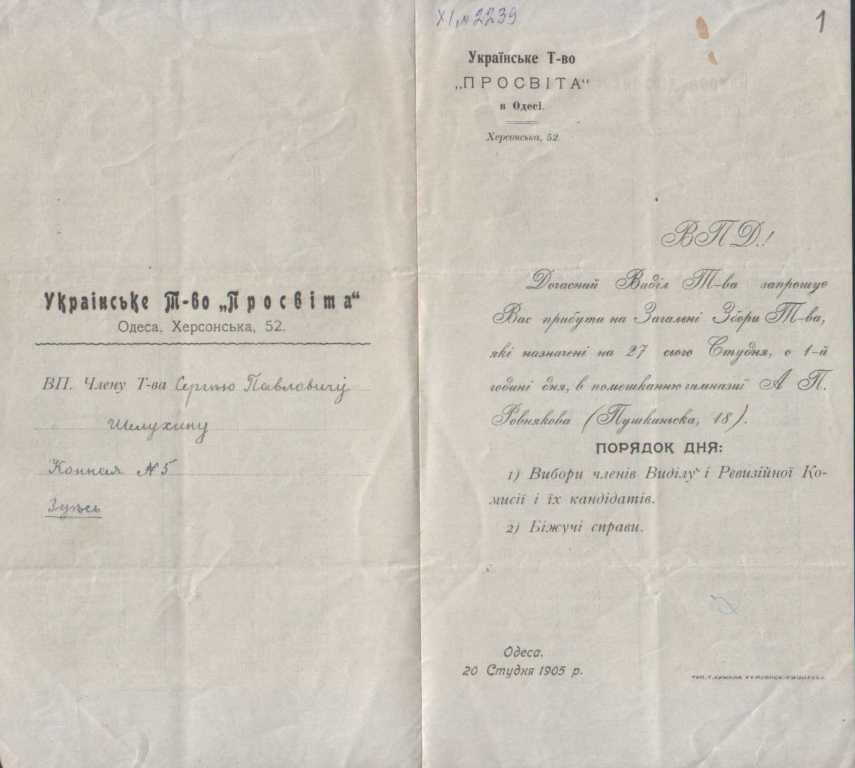 XI, № 2239
1
Українське Т-во „Просвіта“
Одеса, Херсонська, 52.
ВП. Члену Т-ва Сергію Павловичу
Шелухину
Конная № 5
Здѣсь
Українське Т-во
„ПРОСВІТА“
в Одесі.
Херсонська, 52.
ВПД.!
Дочасний Виділ Т-ва запрошує
Вас прибути на Загальні Збори Т-ва,
які назначені на 27 сього Студня, о 1-й
годині дня, в помешканню гимназії А П.
Ровнякова (Пушкінська, 18).
ПОРЯДОК ДНЯ:
1) Вибори членів Виділу і Ревизійної Ко-
мисії і їх кандідатів.
2) Біжучі справи.
Одеса.
20 Студня 1905 р.